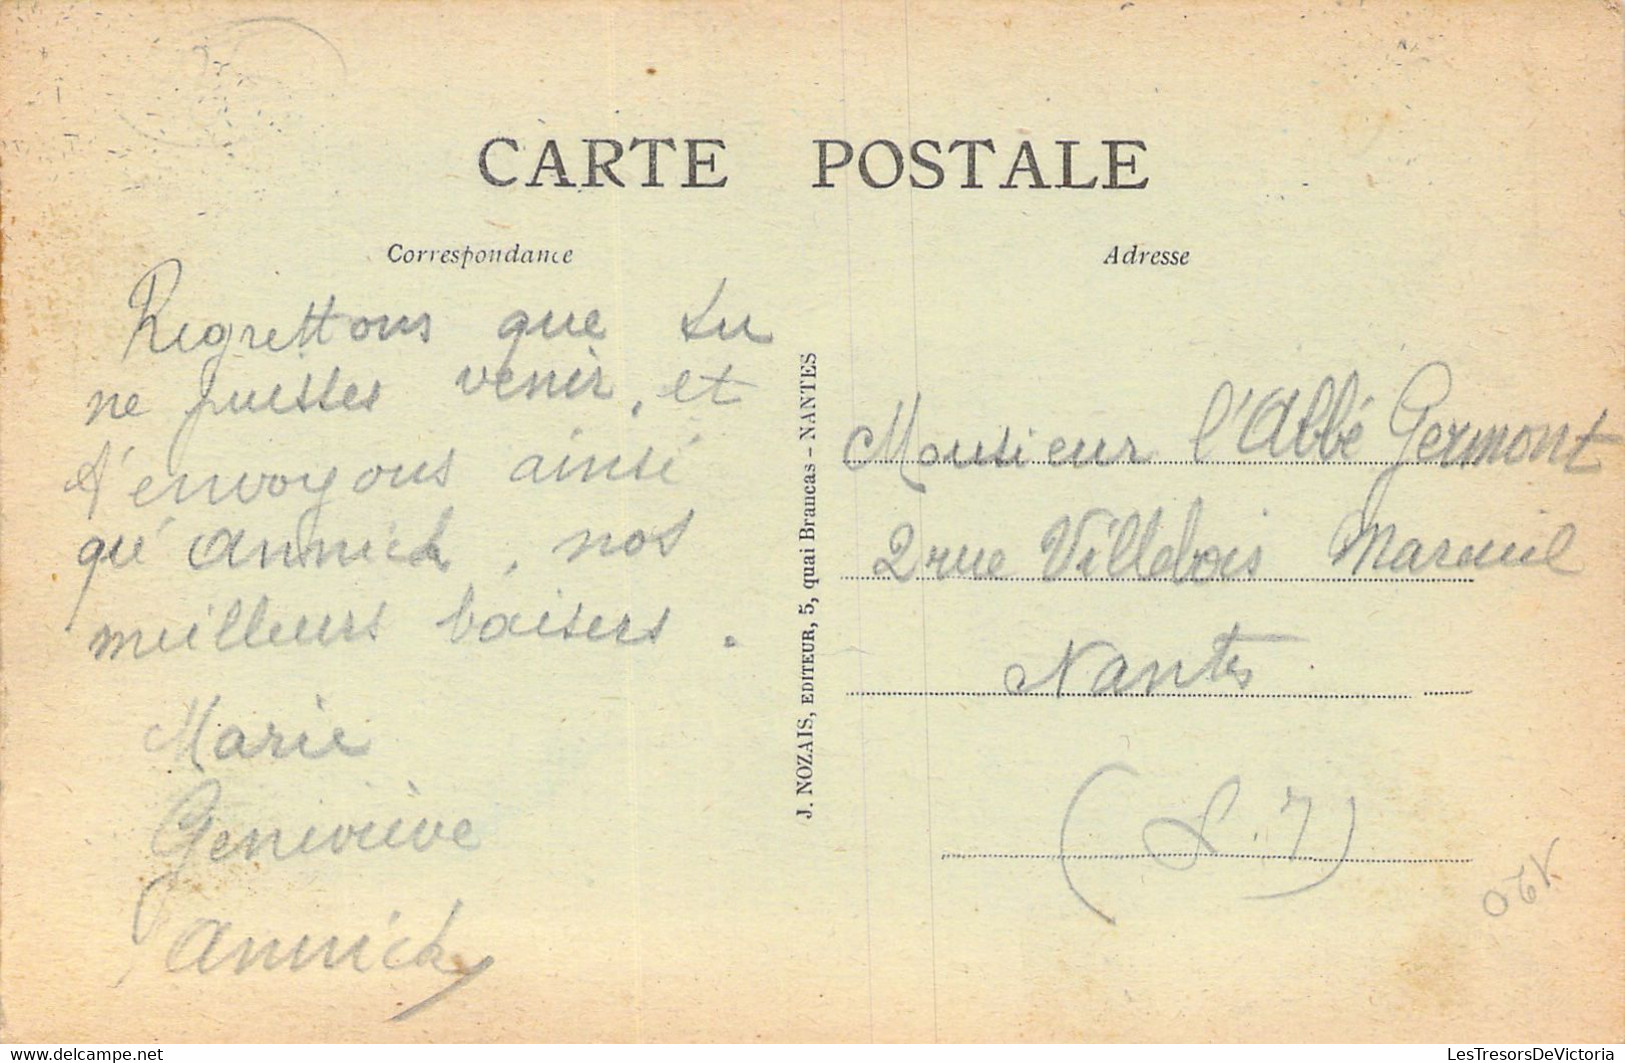 CARTE POSTALE
Correspondance
Regrettons que tu
ne puisses venir, et
t'envoyons ainsi
qu'Annick, nos
meilleurs baisers.
Marie
Geneviève
Annick
J. NOZAIS, EDITEUR, 5, quai Brancas - NANTES
Adresse
Monsieur l'Abbé Germont
2 rue Villebois Mareuil
Nantes
(L. I)
V20
LesTresorsDeVictoria